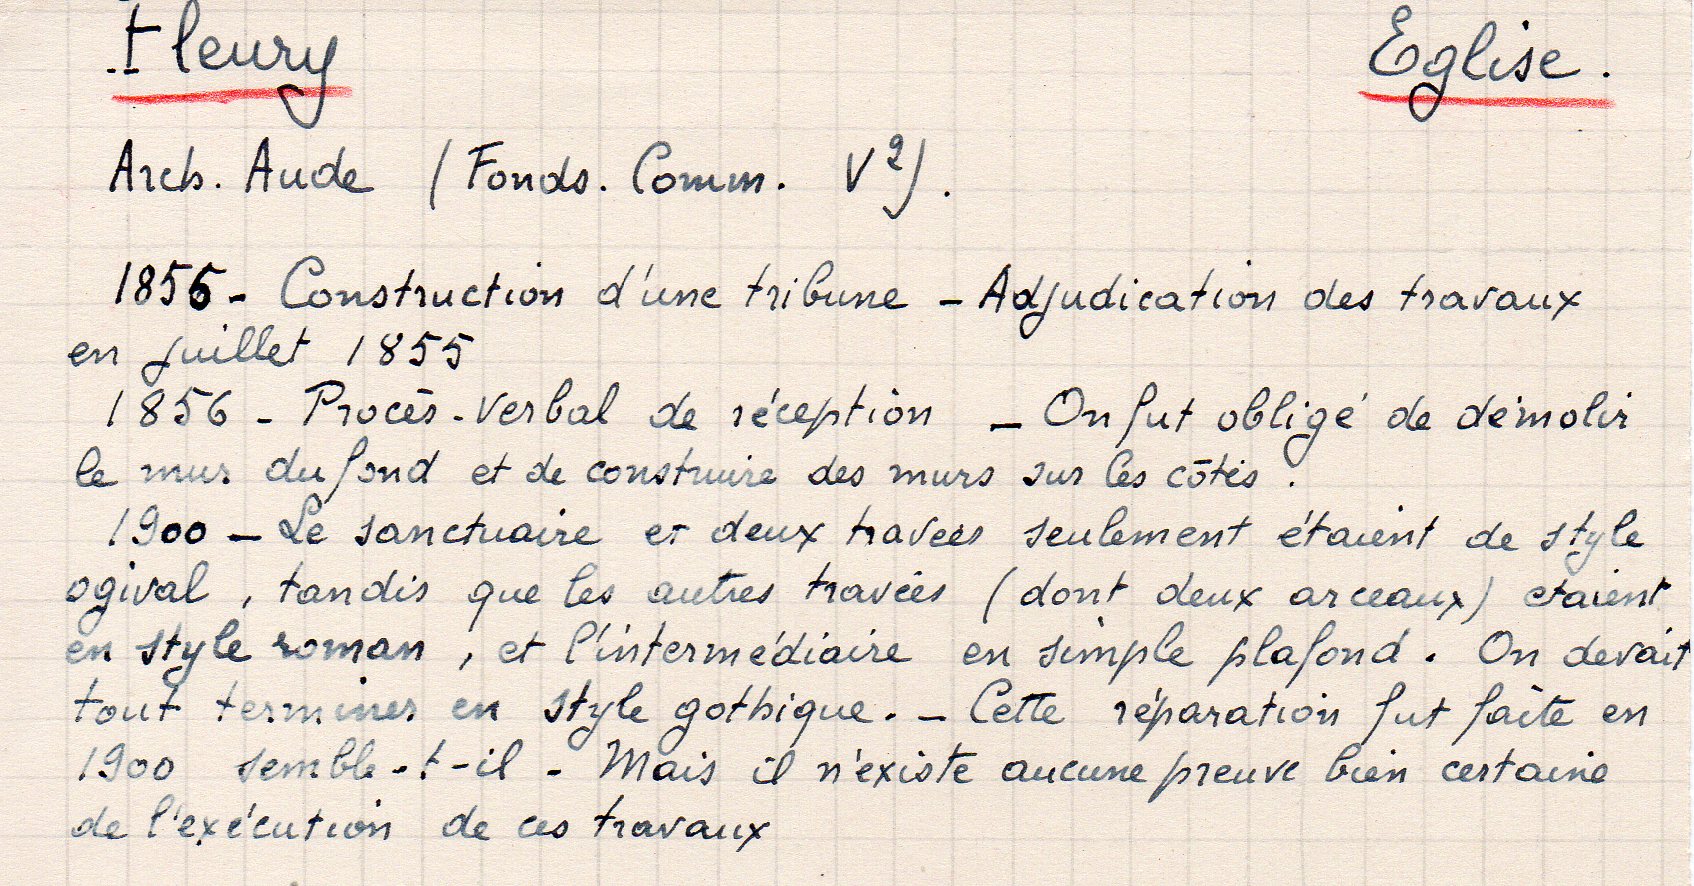 Fleury Eglise.
Arch. Aude (Fonds. Comm. V²).
1856 - Construction d'une tribune - Adjudication des travaux
en juillet 1855
1856 - Procès-verbal de réception - On fut obligé de démolir
le mur du fond et de construire des murs sur les côtés.
1900 - Le sanctuaire et deux travées seulement étaient de style
ogival, tandis que les autres travées (dont deux arceaux) etaient
en style roman, et l'intermédiaire en simple plafond. On devait
tout terminer en style gothique. - Cette réparation fut faîte en
1900 semble-t-il - Mais il n'existe aucune preuve bien certaine
de l'exécution de ces travaux